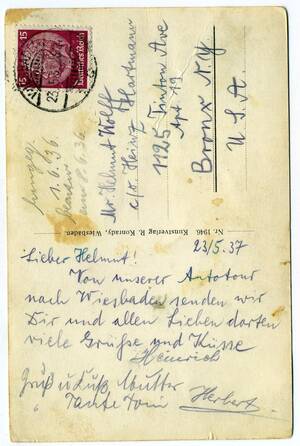 15
Deutsches Reich
15
23.5
Mr. Helmut Wolff
c/o Heinz Hartmann
1125 Tinton Ave
Apt 19
Bronx N.Y.
U.S.A.
1.6.36
8.6.36
Nr. 1946. Kunstverlag R. Konrady, Wiesbaden.
23/5.37
Lieber Helmut!
Von unserer Autotour
nach Wiesbaden senden wir
Dir und allen Lieben dorten
viele Grüsse und Küsse
Heinrich
Gruß u Kuß Mutter
" Tante Toni Herbert.